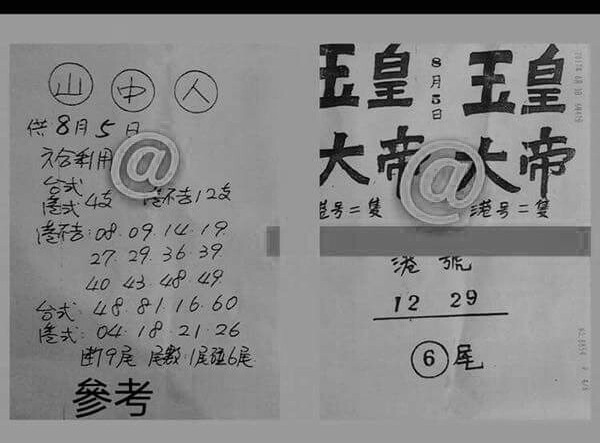 山中人
供8月5日
六合利用
台式
港式 4支 港不吉12支
港不吉:08.09.14.19.
27.29.36.39.
40.43.48.49.
台式:48.81.16.60
港式:04.18.21.26
断19尾 尾数:1尾碰6尾
參考
@
玉皇 8月5日 玉皇
大帝 大帝
@
港号二隻 港号二隻
港號
12 29
⑥尾